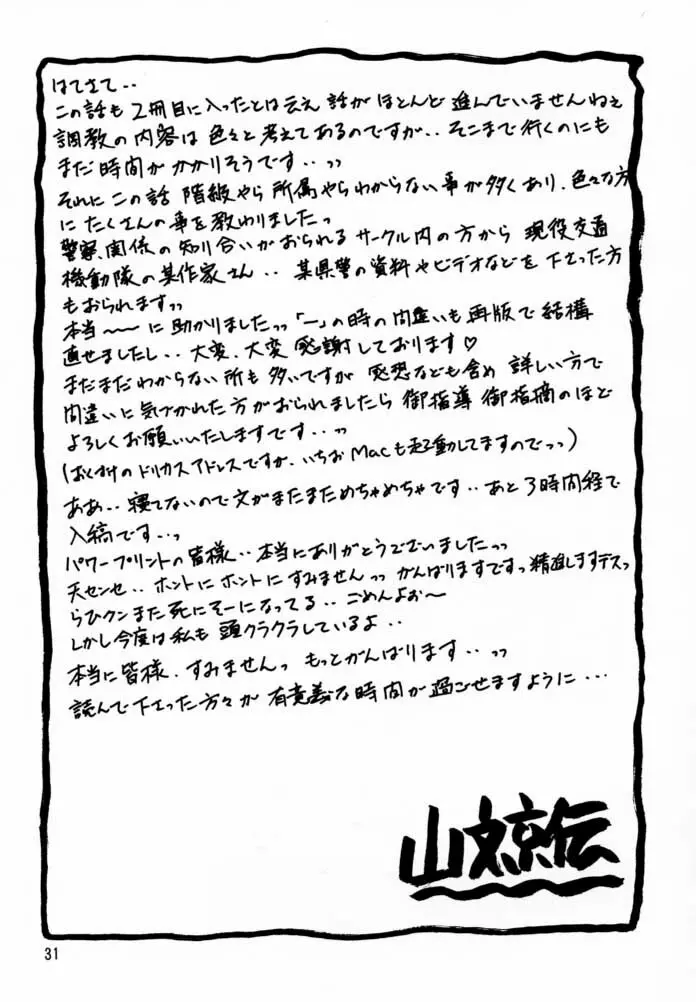 はてさて‥
この話も2冊目に入ったとは云え 話が ほとんど 進んでいませんねぇ
調教の内容は 色々と 考えてあるのですが‥そこまで行くのにも
まだ時間が かかりそうです‥っっ
それに この話 階級やら 所属やらわからない事が多くあり、色々な方
に たくさんの事を教わりましたっ
警察関係の知り合いがおられる サークル内の方から 現役交通
機動隊の某作家さん‥ 某県警の資料やビデオなどを 下さった方
もおられますっっ
本当〜〜〜に助かりましたっっ「一」の時の間違いも 再版で 結構
直せましたし‥大変、大変 感謝しております♡
まだまだわからない所も 多いですが 感想なども含め 詳しい方で
間違いに気づかれた方がおられましたら 御指導 御指摘のほど
よろしくお願いいたしますです‥っっ
(おくづけのドリカスアドレスですが、いちおMacも起動してますのでっっ)
ああ‥寝てないので文がまたまためちゃめちゃです‥あと3時間経で
入稿です‥っ
パワープリントの皆様‥本当にありがとうございましたっっ
天センセ‥ホントにホントにすみませんっっ がんばりますですっ精進しますデスっ
らひクンまた死にそーになってる‥ごめんよぉ〜
しかし今度は私も 頭クラクラしているよ‥
本当に皆様、すみませんっ もっとがんばります‥っっ
読んで下さった方々が 有意義な時間が 過ごせますように…
山文京伝
31